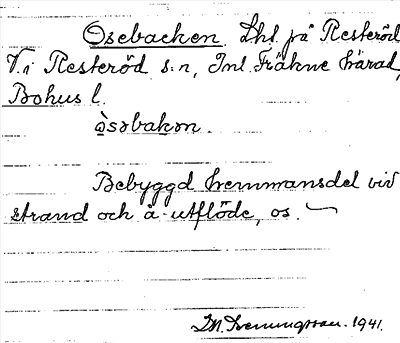 Osebacken. Lht. på Resteröd
V. i Resteröd s:n, Inl. Fräkne härad,
Bohus l.
òsəbakən.
Bebyggd hemmansdel vid
strand och å-utflöde, os.
1941.